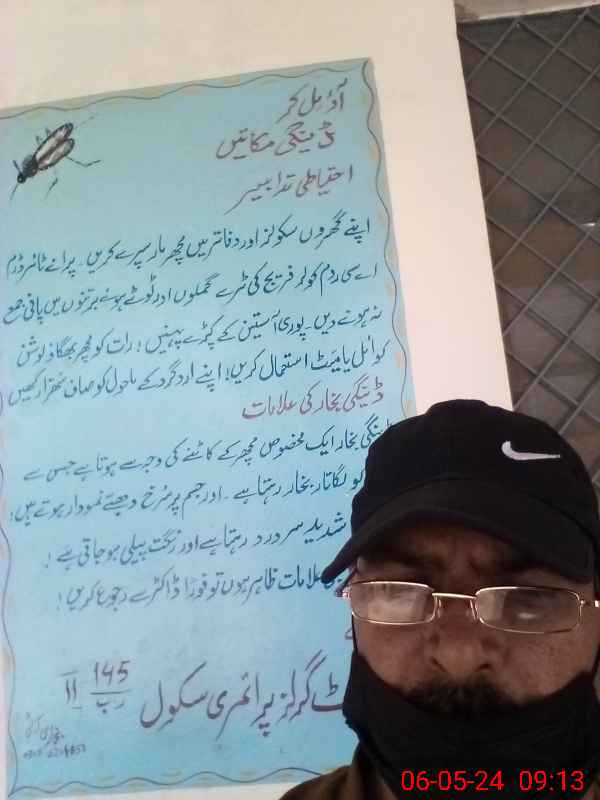 آؤ مل کر
ڈینگی مکائیں
احتیاطی تدابیر
اپنے گھروں سکولز اور دفاتر میں مچھر مار سپرے کریں۔ پرانے ٹائر ڈرم
اے سی روم کولر فریج کی ٹرے گملوں اور ٹوٹے ہوئے برتنوں میں پانی جمع
نہ ہونے دیں۔ پوری آستین کے کپڑے پہنیں؛ رات کو مچھر بھگاؤ لوشن
کوائل یا میٹ استعمال کریں؛ اپنے ارد گرد کے ماحول کو صاف ستھرا رکھیں
ڈینگی بخار کی علامات
ڈینگی بخار ایک مخصوص مچھر کے کاٹنے کی وجہ سے ہوتا ہے جس سے
کو لگاتار بخار رہتا ہے۔ اور جسم پر سرخ دھبے نمودار ہوتے ہیں؛
شدید سر درد رہتا ہے اور رنگت پیلی ہو جاتی ہے؛
علامات ظاہر ہوں تو فوراً ڈاکٹر سے رجوع کریں؛
گرلز پرائمری سکول 145 رب II
06-05-24 09:13